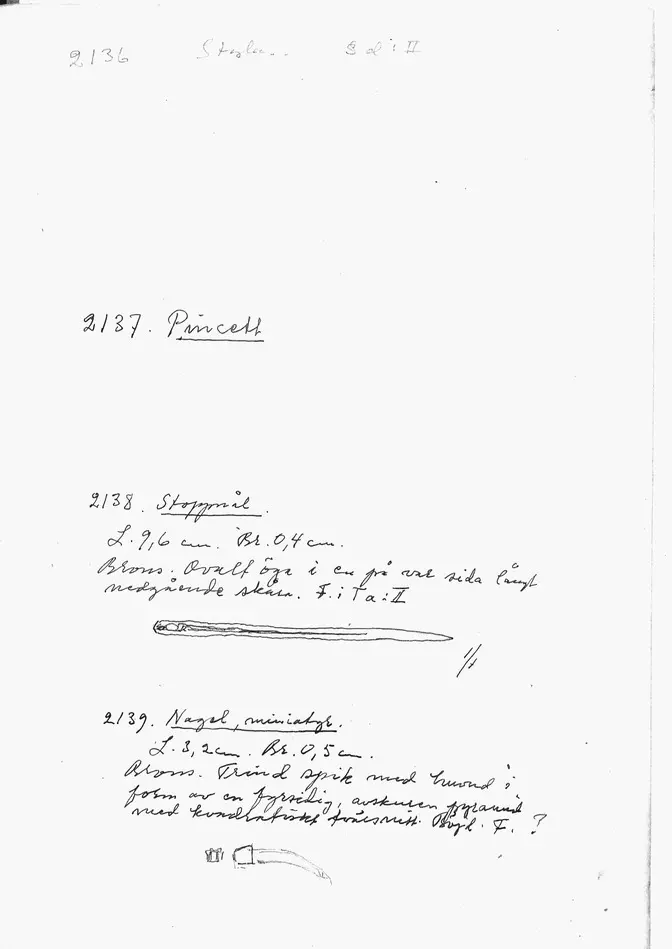 2136 S d : II
2137. Pincett
2138. Stoppnål.
L. 9,6 cm. Br. 0,4 cm.
Brons. Ovalt öga i en på var sida långt
nedgående skåra. F. i Ta : II
1/1
2139. Nagel, miniatyr.
L. 3,2 cm. Br. 0,5 cm.
Brons. Trind spik med huvud i
form av en fyrsidig, avskuren pyramid
med kvadratiskt tvärsnitt. Böjd. F. ?